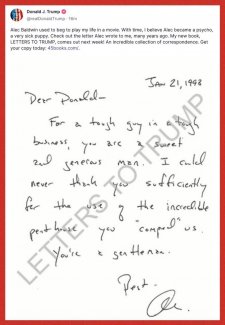 Donald J. Trump
@realDonaldTrump · 16m
Alec Baldwin used to beg to play my life in a movie. With time, I believe Alec became a psycho,
a very sick puppy. Check out the letter Alec wrote to me, many years ago. My new book,
LETTERS TO TRUMP, comes out next week! An incredible collection of correspondence. Get
your copy today: 45books.com/.
JAN 21, 1998
Dear Donald-
For a tough guy in a tough
business, you are a sweet
and generous man. I could
never thank you sufficiently
for the use of the incredible
penthouse you "comped" us.
You're a gentleman.
Best.
LETTERS TO TRUMP